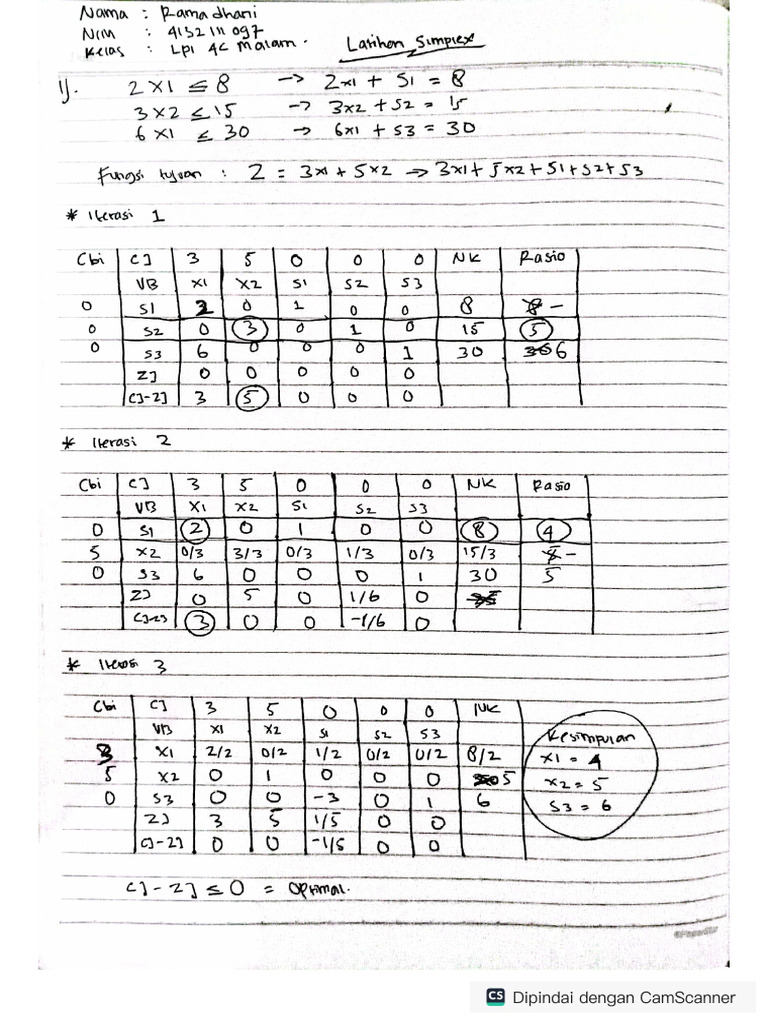 Nama : Ramadhani
NIM : 4132111097
Kelas : LPI 4C Malam.
Latihan Simplex
1). 2x1 ≤ 8 → 2x1 + S1 = 8
3x2 ≤ 15 → 3x2 + S2 = 15
6x1 ≤ 30 → 6x1 + S3 = 30
Fungsi tujuan : Z = 3x1 + 5x2 → 3x1 + 5x2 + S1 + S2 + S3
* Iterasi 1
Cbi CJ 3 5 0 0 0 NK Rasio
VB X1 X2 S1 S2 S3
0 S1 2 0 1 0 0 8 -
0 S2 0 3 0 1 0 15 5
0 S3 6 0 0 0 1 30 6
ZJ 0 0 0 0 0
CJ-ZJ 3 5 0 0 0
* Iterasi 2
Cbi CJ 3 5 0 0 0 NK Rasio
VB X1 X2 S1 S2 S3
0 S1 2 0 1 0 0 8 4
5 X2 0/3 3/3 0/3 1/3 0/3 15/3 -
0 S3 6 0 0 0 1 30 5
ZJ 0 5 0 1/6 0
CJ-ZJ 3 0 0 -1/6 0
* Iterasi 3
Cbi CJ 3 5 0 0 0 NK
VB X1 X2 S1 S2 S3
3 X1 2/2 0/2 1/2 0/2 0/2 8/2
5 X2 0 1 0 0 0 5
0 S3 0 0 -3 0 1 6
ZJ 3 5 1/5 0 0
CJ-ZJ 0 0 -1/5 0 0
Kesimpulan
X1 = 4
X2 = 5
S3 = 6
CJ - ZJ ≤ 0 = Optimal.
CS Dipindai dengan CamScanner